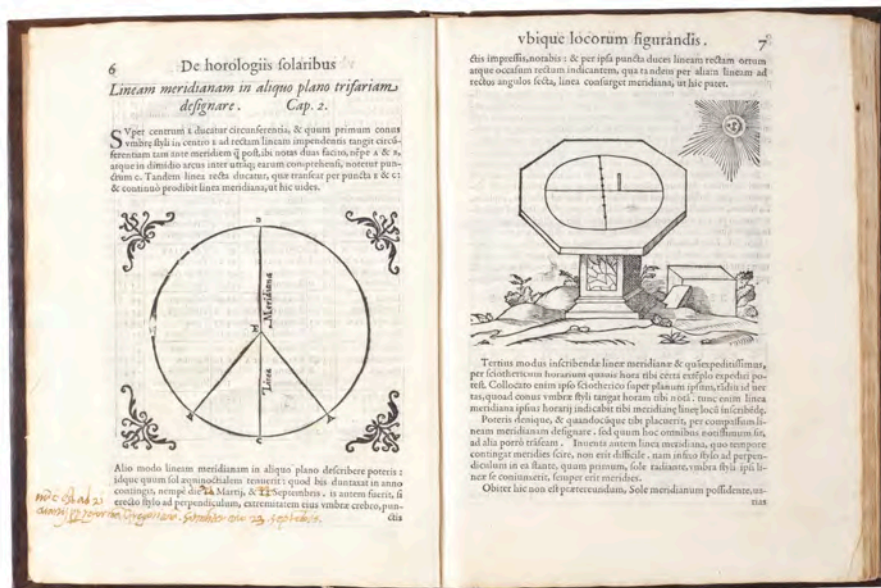 6 De horologiis solaribus
Lineam meridianam in aliquo plano trifariam
designare. Cap. 2.
SVper centrum E ducatur circunferentia, & quum primum conus
vmbræ styli in centro E ad rectam lineam impendentis tangit circũ-
ferentiam tam ante meridiem q̃ post, ibi notas duas facito, nẽpe A & B,
atque in dimidio arcus inter utrãq; earum comprehensi, notetur pun-
ctum C. Tandem linea recta ducatur, quæ transeat per puncta E & C:
& continuò prodibit linea meridiana, ut hic uides.
Meridiana
E
Linea
A
C
Alio modo lineam meridianam in aliquo plano describere poteris:
idque quum sol æquinoctialem tenuerit: quod bis duntaxat in anno
contingit, nempè die Martij, & Septembris. is autem fuerit, si
erecto stylo ad perpendiculum, extremitatem eius vmbræ crebro, pun-
ctis
23 Septembris.
vbique locorum figurandis. 7
ctis impressis, notabis: & per ipsa puncta duces lineam rectam ortum
atque occasum rectum indicantem, qua tandem per aliam lineam ad
rectos angulos secta, linea consurget meridiana, ut hic patet.
Tertius modus inscribendæ lineæ meridianæ & expeditissimus,
per sciothericum horarium quouis hora tibi certa exẽplo expediri po-
test. Collocato enim ipso sciotherico super planum ipsum, id uer
tas, quoad conus vmbræ styli tangat horam tibi notã. tunc enim linea
meridiana ipsius horarij indicabit tibi meridianę lineę locũ inscribẽdę.
Poteris denique, & quandocũque tibi placuerit, per compassum li-
neam meridianam designare. sed quum hoc omnibus notissimum sit,
ad alia porrò trãseam. Inuenta autem linea meridiana, quo tempore
contingat meridies scire, non erit difficile. nam infixo stylo ad perpen-
diculum in ea stante, quum primum, sole radiante, vmbra styli ipsi li-
neæ se coniunxerit, semper erit meridies.
Obiter hic non est prætereundum, Sole meridianum possidente, ua-
rias